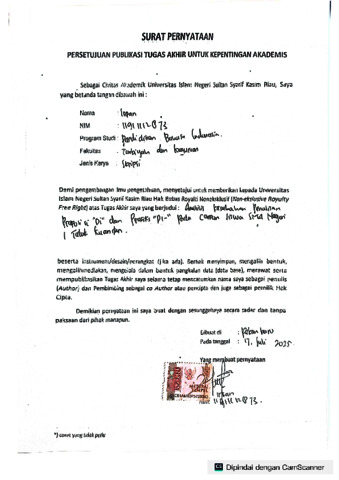 SURAT PERNYATAAN
PERSETUJUAN PUBLIKASI TUGAS AKHIR UNTUK KEPENTINGAN AKADEMIS
Sebagai Civitas Akademik Universitas Islam Negeri Sultan Syarif Kasim Riau, Saya
yang bertanda tangan dibawah ini :
Nama :
NIM : 11911112873
Program Studi : Pendidikan Bahasa Indonesia
Fakultas : Tarbiyah dan keguruan
Jenis Karya : Skripsi
Demi pengembangan ilmu pengetahuan, menyetujui untuk memberikan kepada Universitas
Islam Negeri Sultan Syarif Kasim Riau Hak Bebas Royalti Noneksklusif (Non-ekslusive Royalty
Free Right) atas Tugas Akhir saya yang berjudul : Analisis Kesalahan Penulisan
Preposisi "Di" dan Prefiks "Di-" pada Siswa Negeri
1
beserta instrumen/desain/perangkat (jika ada). Berhak menyimpan, mengalih bentuk,
mengalihmediakan, mengelola dalam bentuk pangkalan data (data base), merawat serta
mempublikasikan Tugas Akhir saya selama tetap mencantumkan nama saya sebagai penulis
(Author) dan Pembimbing sebagai co Author atau pencipta dan juga sebagai pemilik Hak
Cipta.
Demikian pernyataan ini saya buat dengan sesungguhnya secara sadar dan tanpa
paksaan dari pihak manapun.
Dibuat di : Pekanbaru
Pada tanggal : 17 Juli 2025
Yang membuat pernyataan
11911112873
*) coret yang tidak perlu
CS Dipindai dengan CamScanner